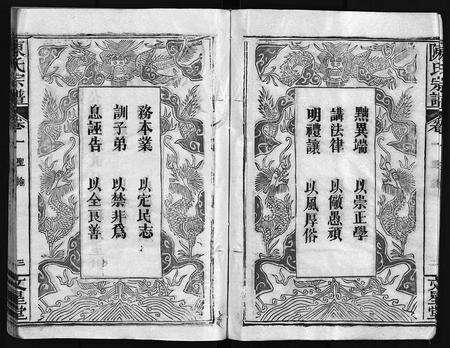 陳氏宗譜
卷一
聖諭
黜異端 以崇正學
講法律 以儆愚頑
明禮讓 以風厚俗
務本業 以定民志
訓子弟 以禁非為
息誣告 以全良善
陳氏宗譜
卷一
聖諭
三
文星堂